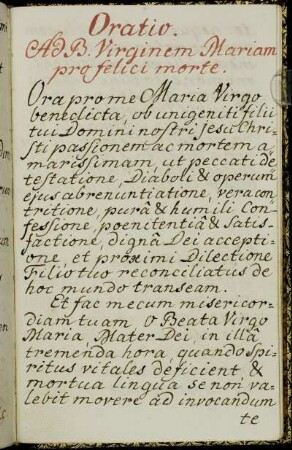 Oratio.
Ad B. Virginem Mariam
pro felici morte.
Ora pro me Maria Virgo
benedicta, ob unigeniti filii
tui Domini nostri Jesu Chri-
sti passionem ac mortem a
marissimam, ut peccati de
testatione, Diaboli & operum
ejus abrenuntiatione, vera con
tritione, purâ & humili Con-
fessione, poenitentiâ & Satis-
factione, dignâ Dei accepti-
one, et proximi Dilectione
Filio tuo reconciliatus de
hoc mundo transeam.
Et fac mecum misericor-
diam tuam, O Beata Virgo
Maria, Mater Dei, in illâ
tremenda hora, quando Spi-
ritus vitales deficient, &
mortua lingua se non va-
lebit movere ad invocandum
te